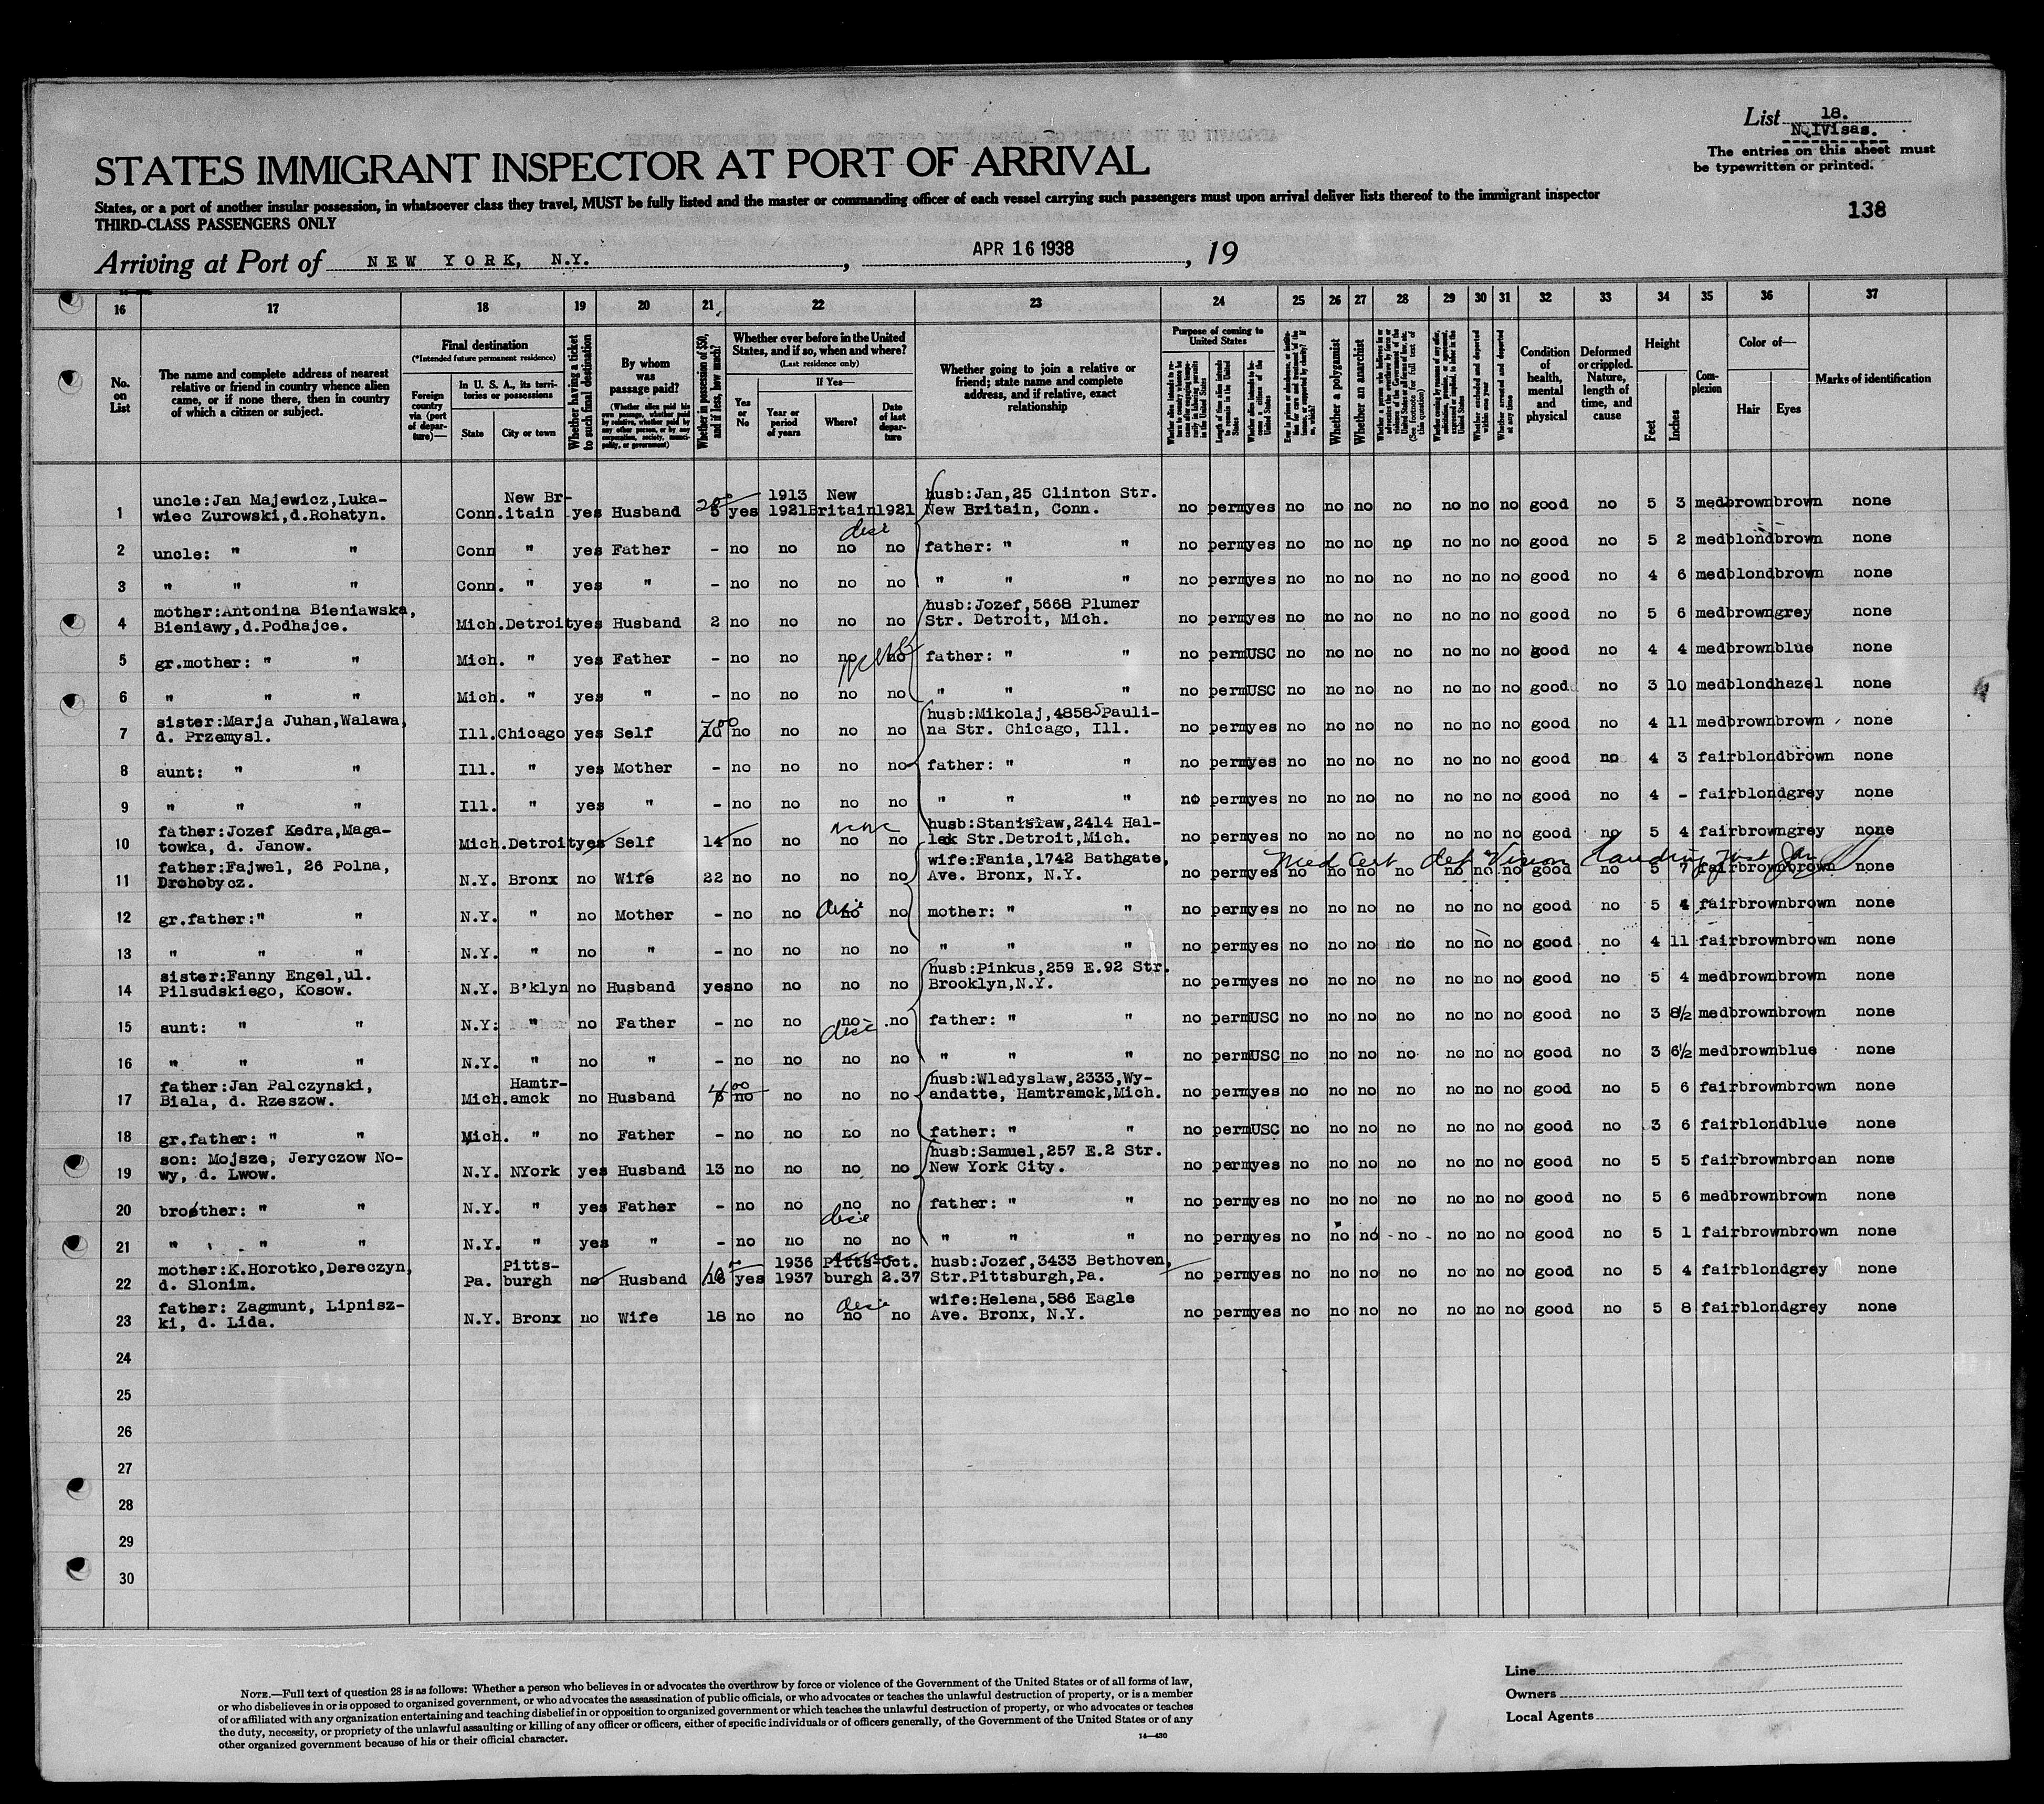 List 18.
NQIVisas.
The entries on this sheet must
be typewritten or printed.
STATES IMMIGRANT INSPECTOR AT PORT OF ARRIVAL
States, or a port of another insular possession, in whatsoever class they travel, MUST be fully listed and the master or commanding officer of each vessel carrying such passengers must upon arrival deliver lists thereof to the immigrant inspector
THIRD-CLASS PASSENGERS ONLY
138
Arriving at Port of NEW YORK, N.Y. , APR 16 1938 , 19
16 17 18 19 20 21 22 23 24 25 26 27 28 29 30 31 32 33 34 35 36 37
No. on List
The name and complete address of nearest relative or friend in country whence alien came, or if none there, then in country of which a citizen or subject.
Final destination
(*Intended future permanent residence)
Foreign country via (port of departure)—
In U. S. A., its territories or possessions
State
City or town
Whether having a ticket to such final destination
By whom was passage paid?
(Whether alien paid his own passage, whether paid by relative, whether paid by any other person, or by any corporation, society, municipality, or government)
Whether in possession of $50, and if less, how much?
Whether ever before in the United States, and if so, when and where?
(Last residence only)
Yes or No
If Yes—
Year or period of years
Where?
Date of last departure
Whether going to join a relative or friend; state name and complete address, and if relative, exact relationship
Purpose of coming to United States
Length of time alien intends to remain in the United States
Whether alien intends to become a citizen of the United States
Whether a polygamist
Whether an anarchist
(See footnote for full text of this question)
Whether excluded and deported within one year
Whether arrested and deported at any time
Condition of health, mental and physical
Deformed or crippled. Nature, length of time, and cause
Height
Feet
Inches
Complexion
Color of—
Hair
Eyes
Marks of identification
1 uncle:Jan Majewicz,Luka-wiec Zurowski,d.Rohatyn. Conn. New Br-itain yes Husband 5 yes 1913 1921 New Britain 1921 husb:Jan,25 Clinton Str. New Britain, Conn. no perm yes no no no no no no no good no 5 3 med brown brown none
2 uncle: " " Conn " yes Father - no no no no father: " " no perm yes no no no no no no no good no 5 2 med blond brown none
3 " " " Conn. " yes " - no no no no " " " no perm yes no no no no no no no good no 4 6 med blond brown none
4 mother:Antonina Bieniawska, Bieniawy,d.Podhajce. Mich. Detroit yes Husband 2 no no no no husb:Jozef,5668 Plumer Str. Detroit, Mich. no perm yes no no no no no no no good no 5 6 med brown grey none
5 gr.mother: " " Mich. " yes Father - no no no no father: " " no perm USC no no no no no no no good no 4 4 med brown blue none
6 " " " Mich. " yes " - no no no no " " " no perm USC no no no no no no no good no 3 10 med blond hazel none
7 sister:Marja Juhan,Walawa, d. Przemysl. Ill. Chicago yes Self no no no no husb:Mikolaj,4858 S Pauli-na Str. Chicago, Ill. no perm yes no no no no no no no good no 4 11 med brown brown none
8 aunt: " " Ill. " yes Mother - no no no no father: " " no perm yes no no no no no no no good no 4 3 fair blond brown none
9 " " " Ill. " yes " - no no no no " " " no perm yes no no no no no no no good no 4 - fair blond grey none
10 father:Jozef Kedra,Maga-towka, d. Janow. Mich. Detroit yes Self 14 no no no no husb:Stanislaw,2414 Hal-lek Str.Detroit,Mich. no perm yes no no no no no no no good no 5 4 fair brown grey none
Med Cert def Vision
11 father:Fajwel, 26 Polna, Drohobycz. N.Y. Bronx no Wife 22 no no no no wife:Fania,1742 Bathgate, Ave. Bronx, N.Y. no perm yes no no no no no no no good no 5 7 fair brown brown none
12 gr.father:" " N.Y. " no Mother - no no no no mother: " " no perm yes no no no no no no no good no 5 4 fair brown brown none
13 " " " N.Y. " no " - no no no no " " " no perm yes no no no no no no no good no 4 11 fair brown brown none
14 sister:Fanny Engel,ul. Pilsudskiego, Kosow. N.Y. B'klyn no Husband yes no no no no husb:Pinkus,259 E.92 Str. Brooklyn,N.Y. no perm yes no no no no no no no good no 5 4 med brown brown none
15 aunt: " " N.Y: " no Father - no no no no father: " " no perm USC no no no no no no no good no 3 8½ med brown brown none
16 " " " N.Y. " no " - no no no no " " " no perm USC no no no no no no no good no 3 6½ med brown blue none
17 father:Jan Palczynski, Biala, d. Rzeszow. Mich. Hamtr-amck no Husband no no no no husb:Wladyslaw,2333,Wy-andatte, Hamtramck,Mich. no perm yes no no no no no no no good no 5 6 fair brown brown none
18 gr.father: " " Mich. " no Father - no no no no father: " " no perm USC no no no no no no no good no 3 6 fair blond blue none
19 son: Mojsze, Jeryczow No-wy, d. Lwow. N.Y. NYork yes Husband 13 no no no no husb:Samuel,257 E.2 Str. New York City. no perm yes no no no no no no no good no 5 5 fair brown broan none
20 brother: " " N.Y. " yes Father - no no no no father: " " no perm yes no no no no no no no good no 5 6 med brown brown none
21 " " " N.Y. " yes " - no no no no " " " no perm yes no no no no no no no good no 5 1 fair brown brown none
22 mother:K.Horotko,Dereczyn, d. Slonim. Pa. Pitts-burgh no Husband yes 1936 1937 Pitts-burgh Oct. 2.37 husb:Jozef,3433 Bethoven, Str.Pittsburgh,Pa. no perm yes no no no no no no no good no 5 4 fair blond grey none
23 father: Zagmunt, Lipnisz-ki, d. Lida. N.Y. Bronx no Wife 18 no no no no wife:Helena,586 Eagle Ave. Bronx, N.Y. no perm yes no no no no no no no good no 5 8 fair blond grey none
24
25
26
27
28
29
30
NOTE.—Full text of question 28 is as follows: Whether a person who believes in or advocates the overthrow by force or violence of the Government of the United States or of all forms of law,
or who disbelieves in or is opposed to organized government, or who advocates the assassination of public officials, or who advocates or teaches the unlawful destruction of property, or is a member
of or affiliated with any organization entertaining and teaching disbelief in or opposition to organized government or which teaches the unlawful destruction of property, or who advocates or teaches
the duty, necessity, or propriety of the unlawful assaulting or killing of any officer or officers, either of specific individuals or of officers generally, of the Government of the United States or of any
other organized government because of his or their official character.
14—430
Line
Owners
Local Agents